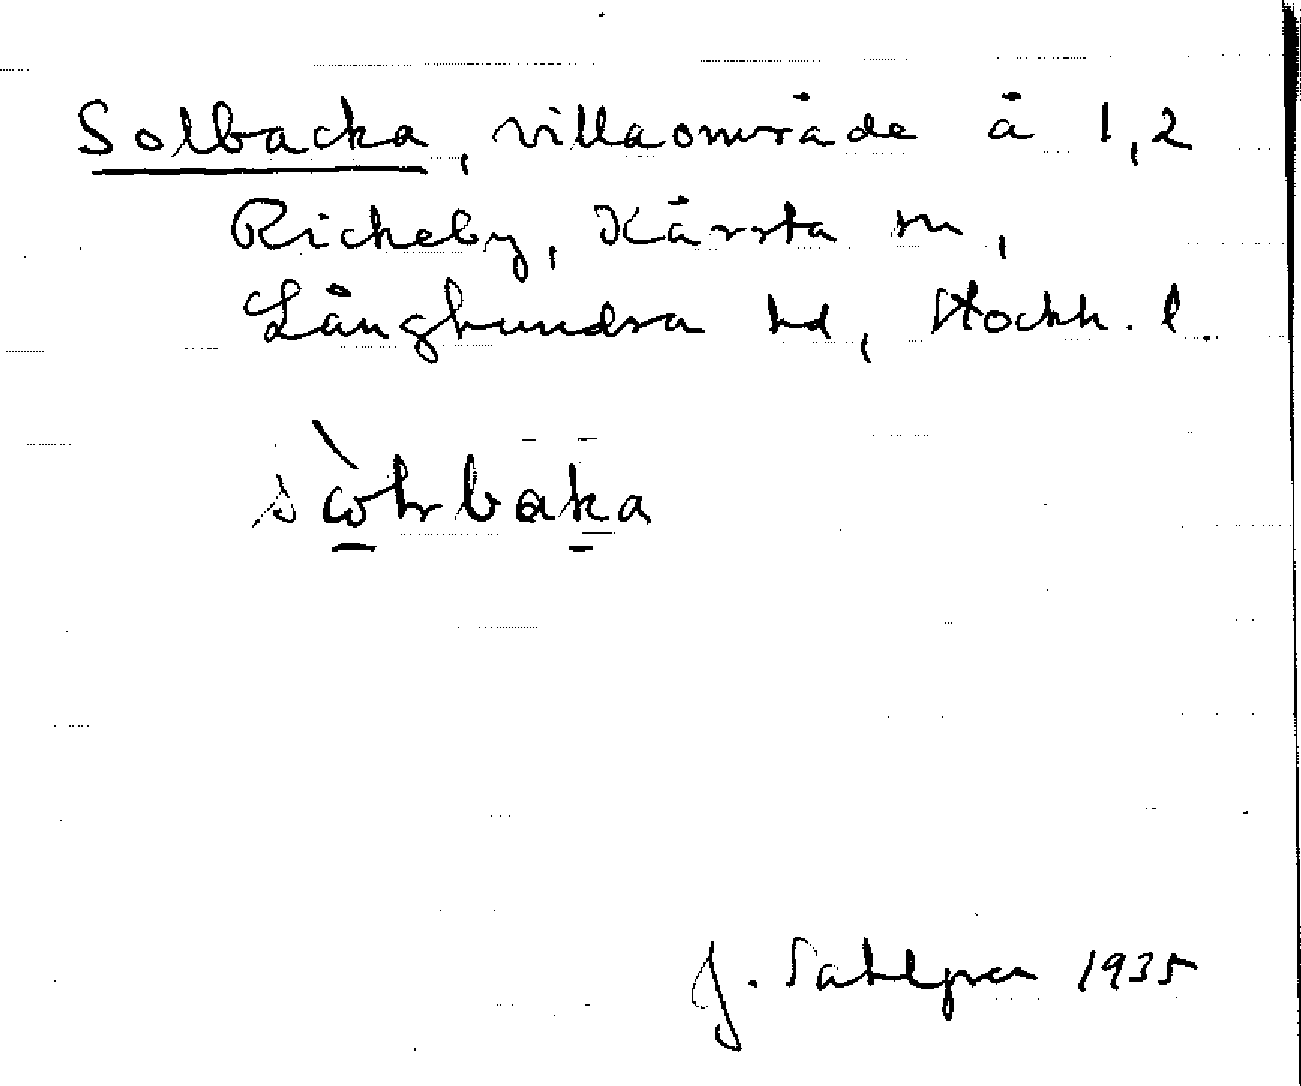 Solbacka, villaområde å 1,2
Rickeby, Kårsta sn,
Långhundra hd, Stockh. l.
J. Sahlgren 1935